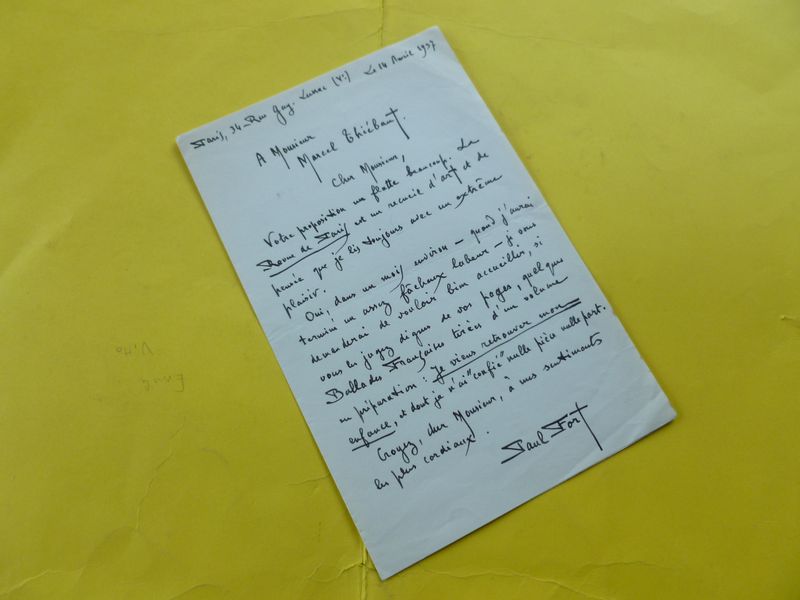 Paris, 34 Rue Gay-Lussac (Ve) Le 14 Avril 1937
A Monsieur
Marcel Thiébaut.
Cher Monsieur,
Votre proposition me flatte beaucoup. La
Revue de Paris est un recueil d'art et de
pensée que je lis toujours avec un extrême
plaisir.
Oui, dans un mois environ – quand j'aurai
terminé un assez fâcheux labeur – je vous
demanderai de vouloir bien accueillir, si
vous les jugez dignes de vos pages, quelques
Ballades Françaises tirées d'un volume
en préparation : Je viens retrouver mon
enfance, et dont je n'ai "confié" nulle pièce nulle part.
Croyez, cher Monsieur, à mes sentiments
les plus cordiaux.
Paul Fort